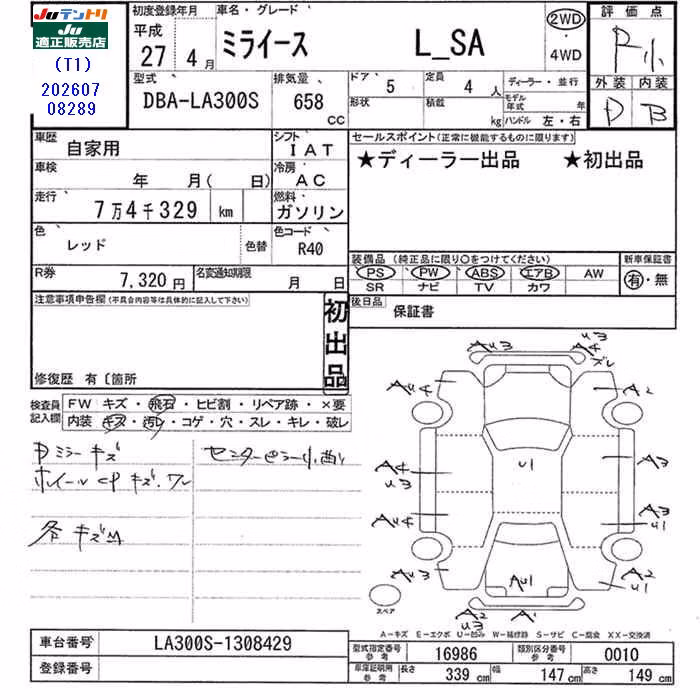 Juテントリ
Ju適正販売店
(T1)
202607
08289
初度登録年月
平成
27 4月
車名・グレード
ミライース L_SA
2WD
・
4WD
評価点
R小
外装 内装
D B
型式
DBA-LA300S
排気量
658
cc
ドア
5
定員
4 人
形状
積載
kg
ディーラー・並行
モデル年式 年
ハンドル 左・右
車歴
自家用
シフト
IAT
車検
年 月( 日)
冷房
AC
走行
7万4千329 km
燃料
ガソリン
色
レッド
色替
色コード
R40
R券
7,320円
名変通知期限
月 日
セールスポイント(正常に機能するものに限ります)
★ディーラー出品 ★初出品
装備品 (純正品に限り○をつけてください)
PS PW ABS エアB AW
SR ナビ TV カワ
新車保証書
有・無
後日品
保証書
注意事項申告欄(不具合内容等は具体的に記入して下さい)
初出品
修復歴 有〔箇所
検査員
記入欄
FW キズ・飛石・ヒビ割・リペア跡・×要
内装 キズ・汚レ・コゲ・穴・スレ・キレ・破レ
Dミラーキズ
ホイールCPキズ、ワレ
各キズM
センターピラー小凹
Au3
u3
A4
ズレ
Au4
A2
u1
A4
u3
A3
Au4
A3
u1
Au3
Au1
A2
u1
A2
u3
A1
スペア
A-キズ E-エクボ U-凹み W-補修跡 S-サビ C-腐食 XX-交換済
車台番号
LA300S-1308429
登録番号
型式指定番号
参考
16986
類別区分番号
参考
0010
車庫証明用
参考
長さ 339 cm 幅 147 cm 高さ 149 cm